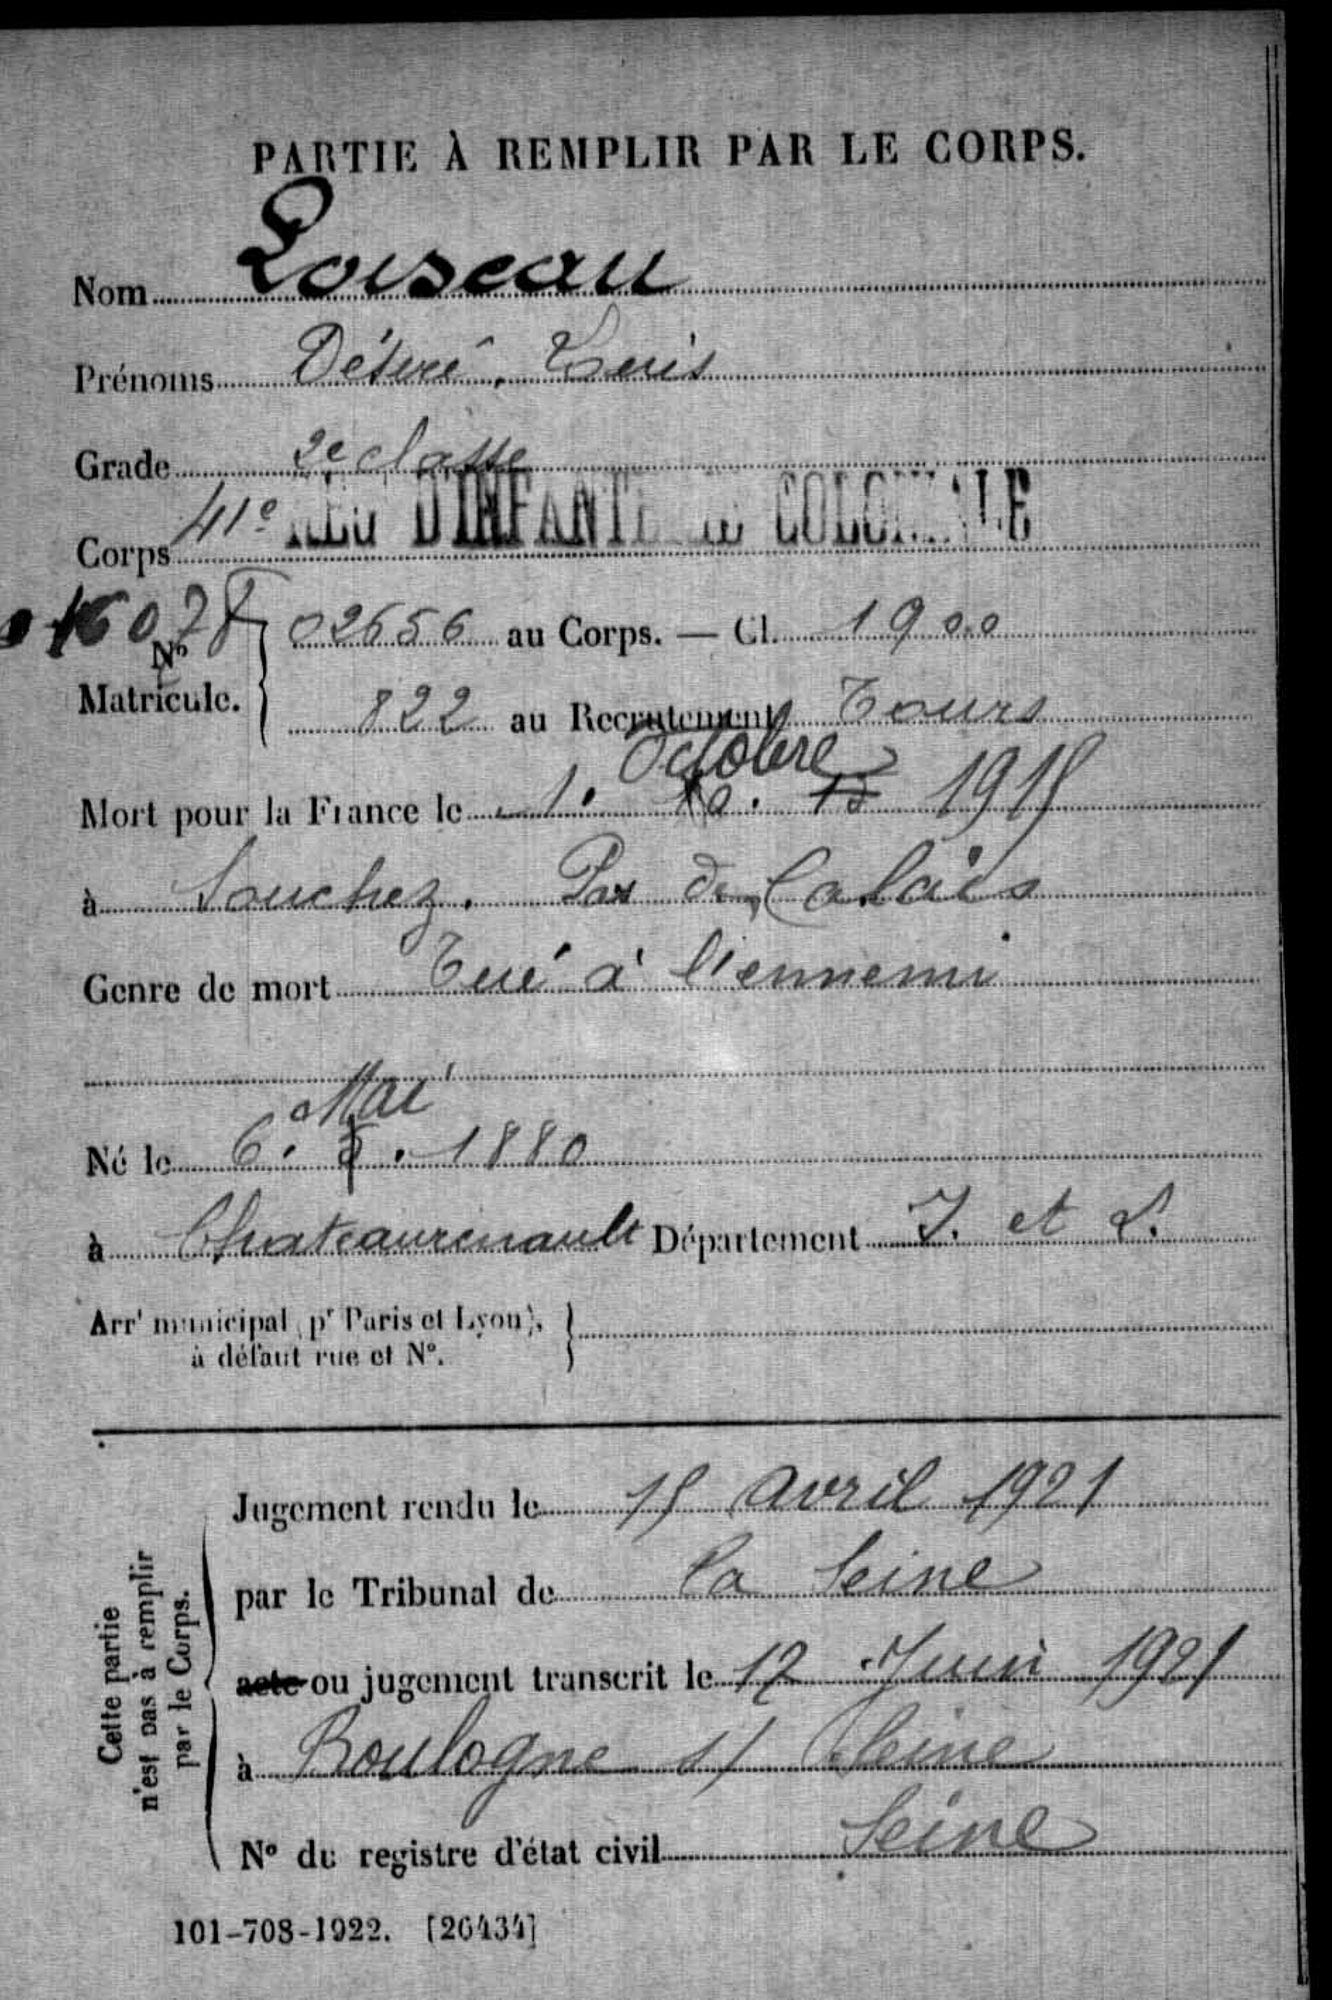 PARTIE À REMPLIR PAR LE CORPS.
Nom Loiseau
Prénoms Désiré. Louis
Grade 2e classe
Corps 41e REG D'INFANTERIE COLONIALE
16078
Nº Matricule. 02656 au Corps. — Cl. 1900
822 au Recrutement Tours
Octobre
Mort pour la France le 1. 10. 15 1915
à Souchez. Pas de Calais
Genre de mort Tué à l'ennemi
Mai
Né le 6. 5. 1880
à Chateaurenault Département I. et L.
Arrt municipal (pr Paris et Lyon),
à défaut rue et Nº.
Cette partie
n'est pas à remplir
par le Corps.
Jugement rendu le 15 Avril 1921
par le Tribunal de la Seine
acte ou jugement transcrit le 12 Juin 1921
à Boulogne s/ Seine
Seine
Nº du registre d'état civil
101-708-1922. [26434]